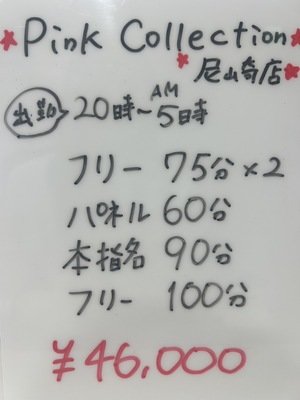 Pink Collection
尼崎店
出勤 20時~AM5時
フリー 75分×2
パネル 60分
本指名 90分
フリー 100分
¥46,000